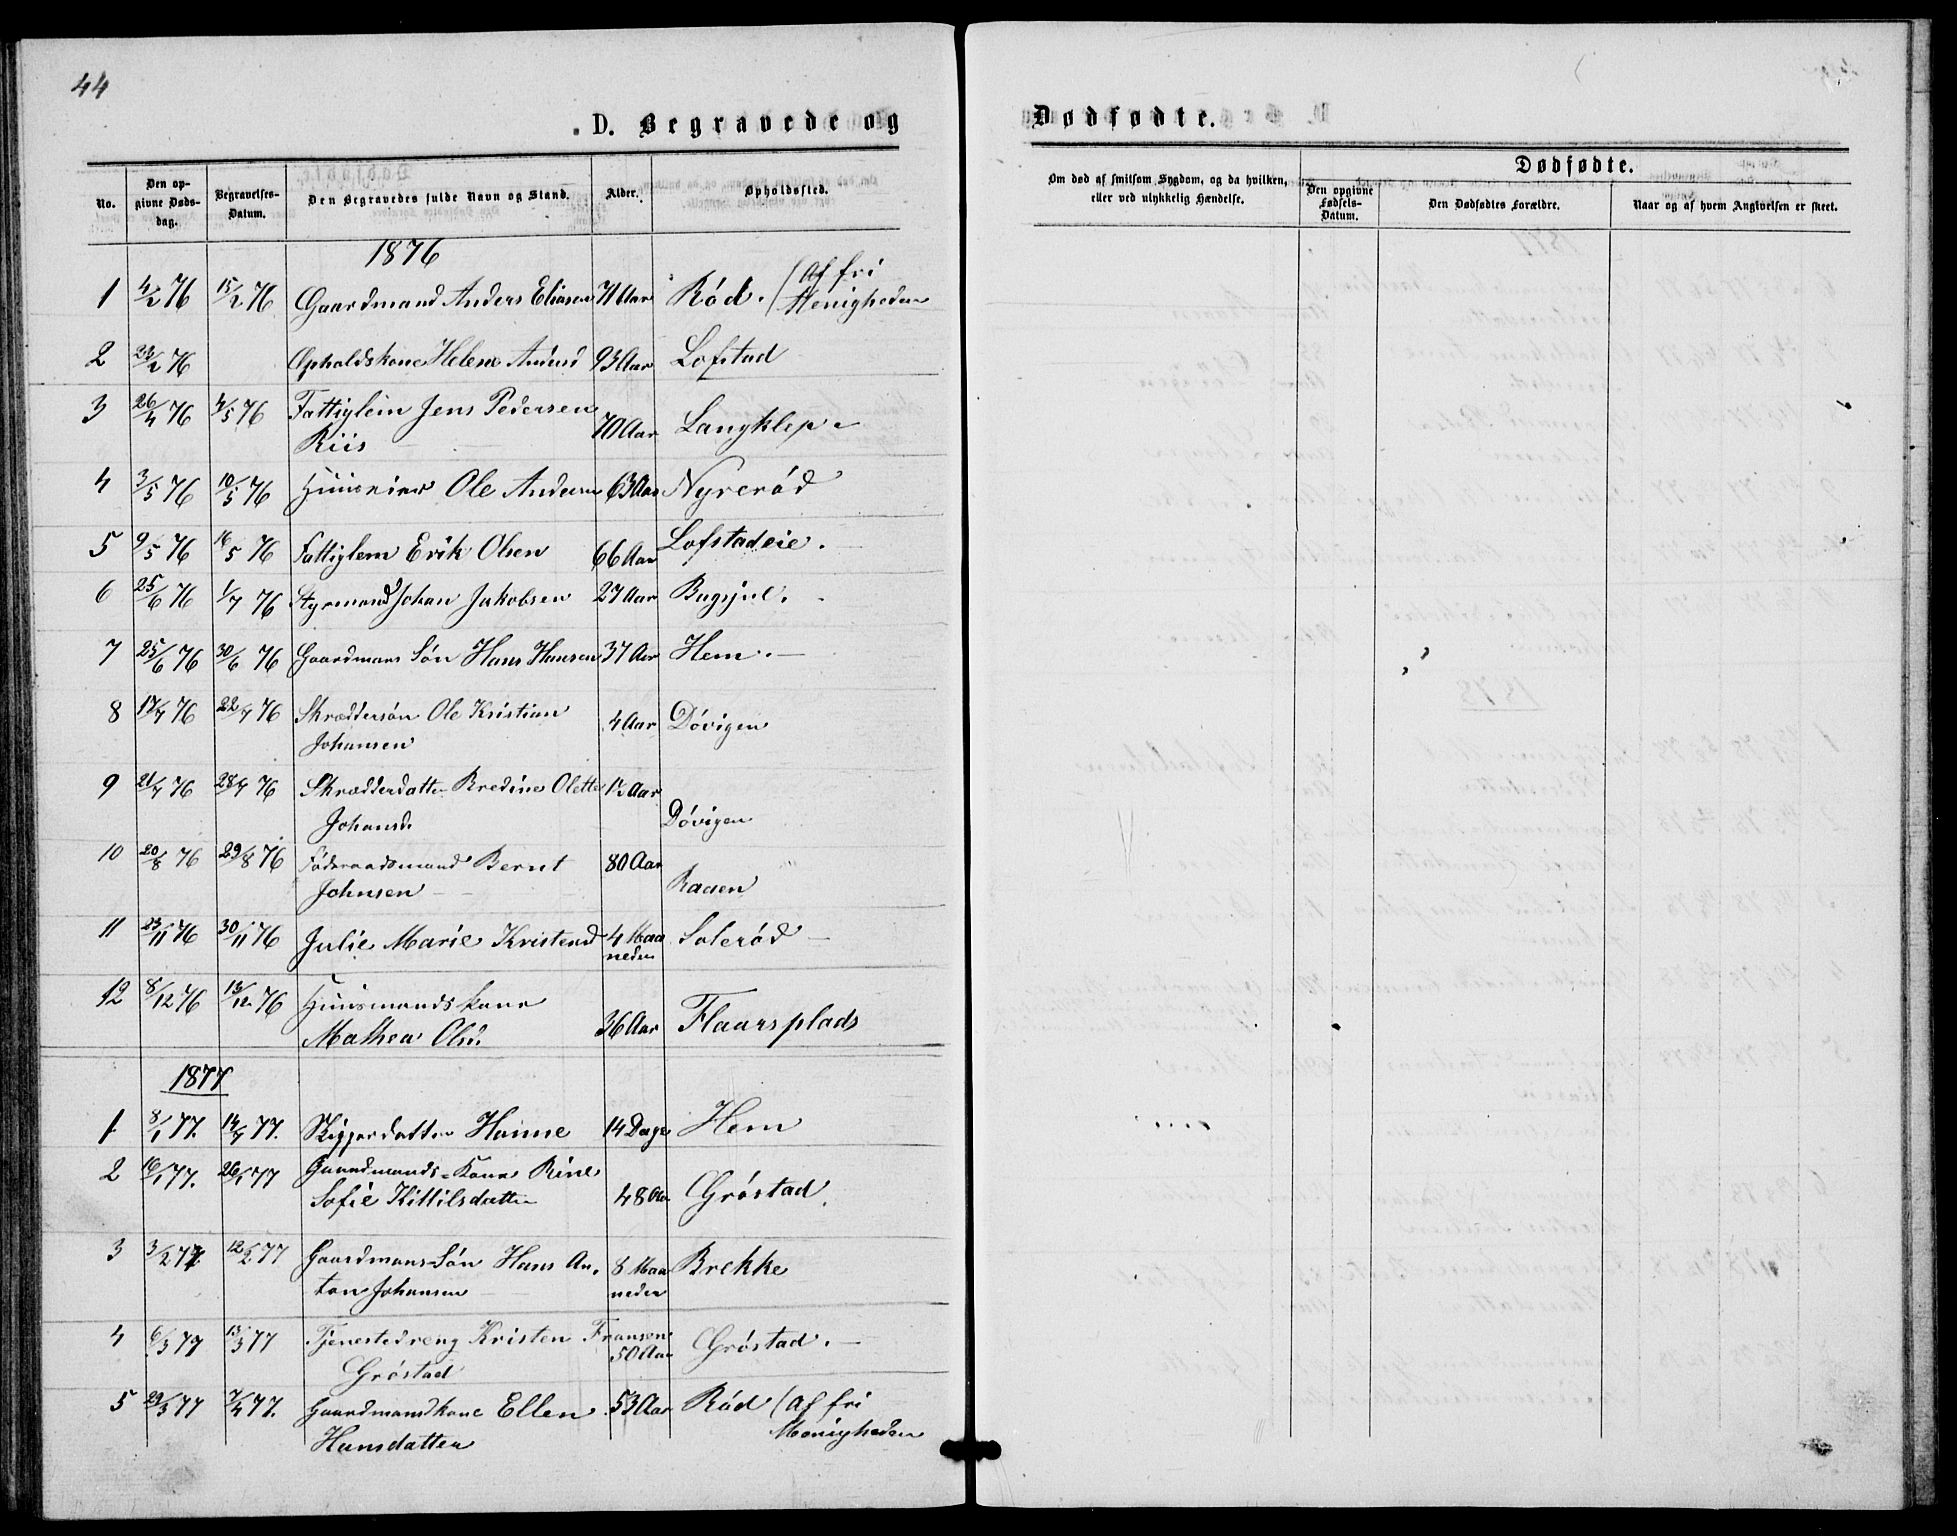 44
D. Begravede og
Dødfødte.
No.
Den op-
givne Døds-
dag.
Begravelses-
Datum.
Den Begravedes fulde Navn og Stand.
Alder.
Opholdssted.
Om død af smitsom Sygdom, og da hvilken,
eller ved ulykkelig Hændelse.
Dødfødte.
Den opgivne
Fødsels-
Datum.
Den Dødfødtes Forældre.
Naar og af hvem Angivelsen er skeet.
1876
1 4/2 76 15/2 76 Gaardmand Anders Eliasen 71 Aar Rød. (Af fri
Menigheden
2 23/2 76 Opholdskone Helene Andersd 93 Aar Lofstad
3 26/4 76 4/5 76 Fattiglem Jens Pedersen
Riis 70 Aar Langklep
4 3/5 76 10/5 76 Ole Andersen 63 Aar Nyrerød
5 9/5 76 16/5 76 Fattiglem Erik Olsen 66 Aar Lofstadeie.
6 25/6 76 1/7 76 Styrmand Johan Jakobsen 27 Aar
7 25/6 76 30/6 76 Gaardmans Søn Hans Hansen 37 Aar Hem.
8 17/7 76 22/7 76 Skræddersøn Ole Kristian
Johansen 4 Aar Døvigen
9 21/7 76 28/7 76 Skrædderdatter Bredine Olette
Johansd. 1½ Aar Døvigen
10 20/8 76 29/8 76 Føderaadsmand Bernt
Johnsen 80 Aar Raaen
11 23/11 76 30/11 76 Julie Marie Kristensd 4 Maa
neder Solerød
12 8/12 76 13/12 76 Huusmands kone
Mathea Olsd. 36 Aar Flaarsplads
1877
1 8/1 77. 14/1 77. Skipperdatter Hanne 14 Dage Hem
2 16/1 77. 26/1 77 Gaardmands-Kone Rine
Sofie Kittilsdatter 48 Aar Grøstad.
3 3/2 77 12/2 77 Gaardmans-Søn Hans An-
ton Johansen 8 Maa
neder Brekke
4 6/3 77 13/3 77 Tjenestedreng Kristen Fransen
Grøstad 50 Aar Grøstad.
5 29/3 77 7/4 77. Gaardmandkone Ellen
Hansdatter 53 Aar Rød (Af fri
Menigheden